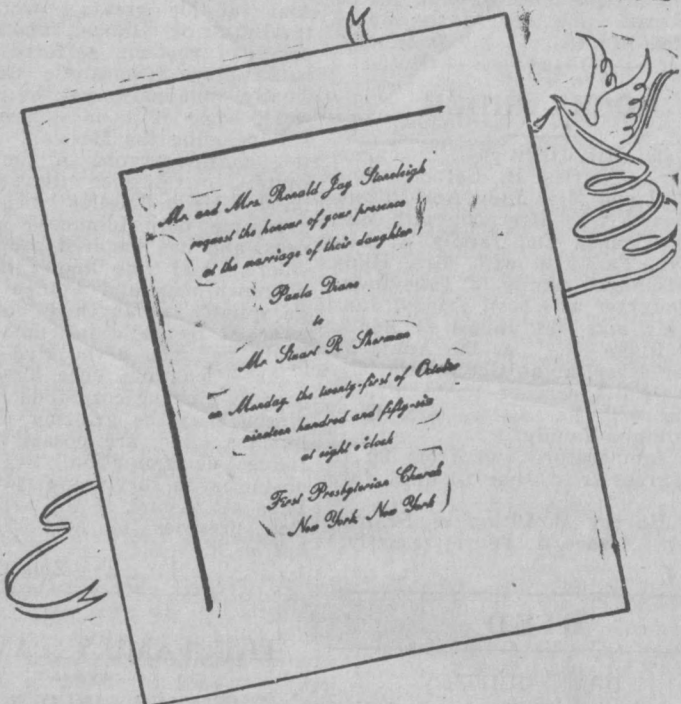 Mr. and Mrs. Ronald Jay Stoneleigh
request the honour of your presence
at the marriage of their daughter
Paula Diane
to
Mr. Stuart R. Sherman
on Monday, the twenty-first of October
nineteen hundred and fifty-six
at eight o'clock
First Presbyterian Church
New York New York